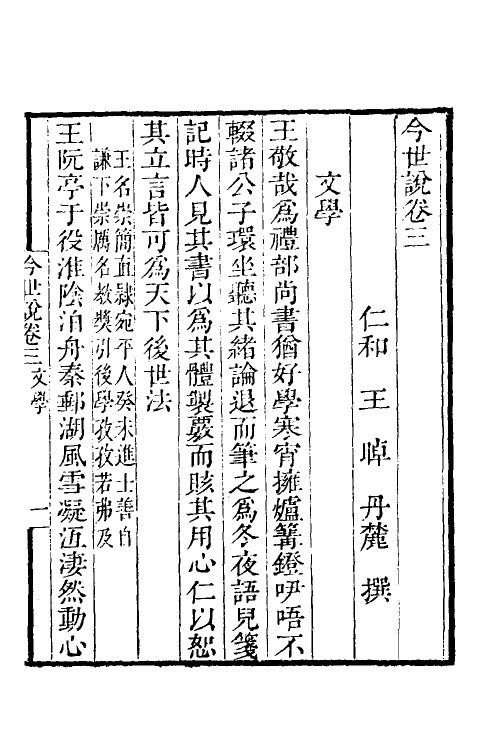 今世說卷三
仁和　王　晫　丹麓　撰
文學
王敬哉爲禮部尚書猶好學寒宵擁爐篝鐙吚唔不
輟諸公子環坐聽其緒論退而筆之爲冬夜語兒箋
記時人見其書以爲其體製嚴而賅其用心仁以恕
其立言皆可爲天下後世法
王名崇簡直隸宛平人癸未進士善自
謙下崇厲名教獎引後學孜孜若弗及
王阮亭于役淮陰泊舟秦郵湖風雪凝沍淒然動心
今世說卷三　文學　一